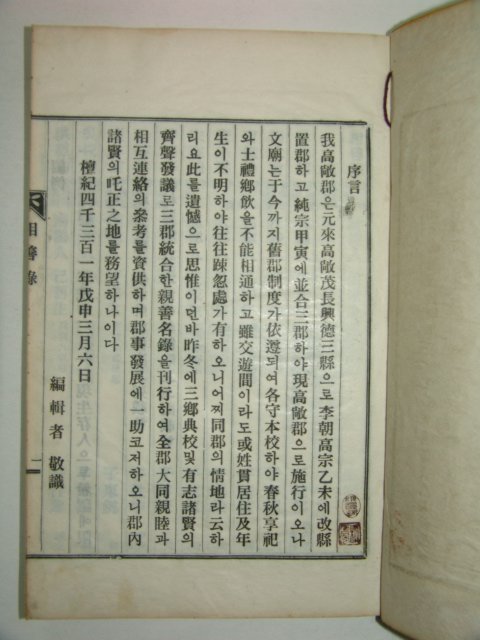 序言
我高敞郡은元來高敞茂長興德三縣으로李朝高宗乙未에改縣
置郡하고純宗甲寅에並合三郡하야現高敞郡으로施行이오나
文廟는于今까지舊郡制度가依遵되여各守本校하야春秋享祀
와士禮鄕飮을不能相通하고雖交遊間이라도或姓貫居住及年
生이不明하야往往踈忽處가有하오니어찌同郡의情地라云하
리요此를遺憾으로思惟이던바昨冬에三鄕典校및有志諸賢의
齊聲發議로三郡統合한親善名錄을刊行하여全郡大同親睦과
相互連絡의叅考를資供하며郡事發展에一助코저하오니郡內
諸賢의叱正之地를務望하나이다
檀紀四千三百一年戊申三月六日
編輯者 敬識
善錄
一